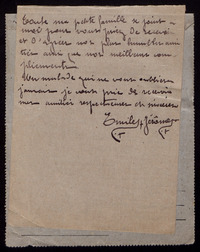 Toute ma petite famille se joint a
moi pour vous prier de recevoir
et d'agreer nos plus
ainsi que nos meilleurs com
pliments
Un malade qui ne vous oubliera
jamais je vous prie de recevoir
mes amitiés respectueuses et sincères
Emile